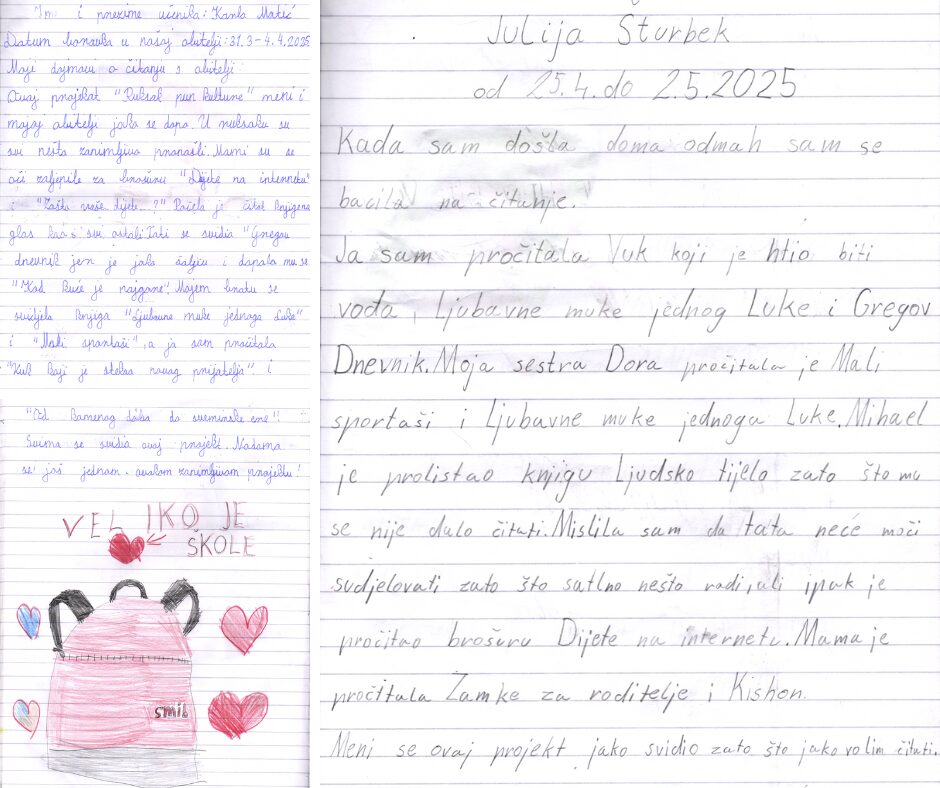 Ime i prezime učenika: Karla Matić
Datum boravka u našoj obitelji: 31.3-4.4.2025
Moji dojmovi o čitanju s obitelji:
Ovaj projekat "Ruksak pun kulture" meni i
mojoj obitelji jako se dopa. U ruksaku su
svi nešto zanimljivo pronašli. Mami su se
oči zaljepile za brošuru "Dijete na internetu"
i "Zašto vaše dijete...?" Počela je čitat knjigena
glas kao i svi ostali. Tati se svidio "Gregov
dnevnik jer je jako šaljiv i dopalo mu se
"Kod kuće je najgore". Mojem bratu se
svidjela knjiga "Ljubavne muke jednoga Luke"
i "Mali sportaši", a ja sam pročitala
"Vuk koji je stekao novog prijatelja" i
"Od kamenog doba do svemirske ere"!
Svima se svidio ovaj projekt. Nadamo
se još jednom ovakom zanimljivom projektu!
VELIKO JE
ŠKOLE
smib
Julija Šturbek
od 25.4. do 2.5.2025
Kada sam došla doma odmah sam se
bacila na čitanje.
Ja sam pročitala Vuk koji je htio biti
vođa, Ljubavne muke jednog Luke i Gregov
Dnevnik. Moja sestra Dora pročitala je Mali
sportaši i Ljubavne muke jednoga Luke. Mihael
je prolistao knjigu Ljudsko tijelo zato što mu
se nije dalo čitati. Mislila sam da tata neće moći
sudjelovati zato što satlno nešto radi, ali ipak je
pročitao brošuru Dijete na internetu. Mama je
pročitala Zamke za roditelje i Kishon.
Meni se ovaj projekt jako svidio zato što jako volim čitati.